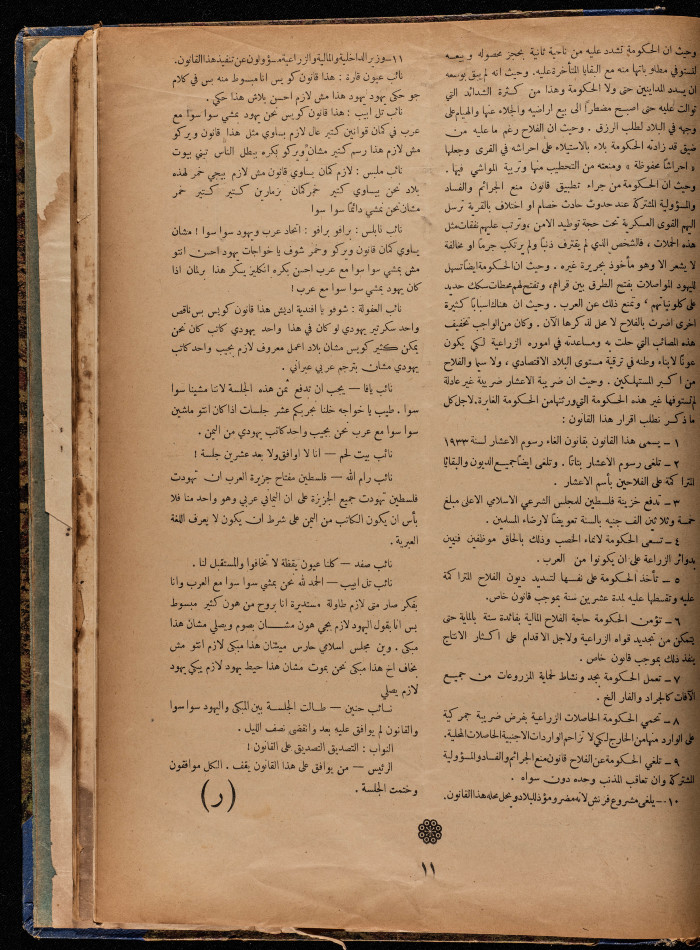 وحيث ان الحكومة تشدد عليه من ناحية ثانية بحجز محصوله وبيعه
لتستوفي مطلوباتها منه مع البقايا المتأخرة عليه. وحيث انه لم يبق بوسعه
ان يسدد المداينين حتى ولا الحكومة وهذا من كثرة الشدائد التي
توالت عليه حتى اصبح مضطراً الى بيع اراضيه والجلاء عنها والهيام على
وجهه في البلاد لطلب الرزق . وحيث ان الفلاح رغم ما عليه من
ضيق قد زادته الحكومة بلاء بالاستيلاء على احراشه في القرى وجعلها
« احراشاً محفوظة » ومنعته من التحطيب منها وتربية المواشي فيها .
وحيث ان الحكومة من جراء تطبيق قانون منع الجرائم والفساد
والمسؤولية المشتركة عند حدوث حادث خصام او اختلاف بالقرية ترسل
اليهم القوى العسكرية تحت حجة توطيد الامن ،وترتب عليهم نفقات مثل
هذه الحملات ، فالشخص الذي لم يقترف ذنباً ولم يرتكب جرماً او مخالفة
لا يشعر الا وهو مأخوذ بجريرة غيره . وحيث ان الحكومة ايضاً تسهل
لليهود المواصلات بفتح الطرق بين قراهم، وتفتح لهم محطات سكك حديد
على كلونياتهم ، وتمنع ذلك عن العرب . وحيث ان هناك اسباباً كثيرة
اخرى اضرت بالفلاح لا محل لذكرها الآن . وكان من الواجب تخفيف
هذه المصائب التي حلت به ومساعدته في اموره الزراعية لكي يكون
عوناً لابناء وطنه في ترقية مستوى البلاد الاقتصادي ، ولا سيما والفلاح
من اكبر المستهلكين . وحيث ان ضريبة الاعشار ضريبة غير عادلة
لم تستوفها غير هذه الحكومة التي ورثتها من الحكومة الغابرة. لاجل كل
ما ذكر نطلب اقرار هذا القانون :
١ – يسمى هذا القانون بقانون الغاء رسوم الاعشار لسنة ١٩٣٣
٢ – تلغى رسوم الاعشار بتاتاً . وتلغى ايضاً جميع الديون والبقايا
المتراكمة على الفلاحين بأسم الاعشار .
٣ – تدفع خزينة فلسطين للمجلس الشرعي الاسلامي الاعلى مبلغ
خمسة وثلاثين الف جنيه بالسنة تعويضاً لارضاء المسلمين .
٤ – تسعى الحكومة لانماء الخصب وذلك بالحاق موظفين فنيين
بدوائر الزراعة على ان يكونوا من العرب .
٥ – تأخذ الحكومة على نفسها لتسديد ديون الفلاح المتراكمة
عليه وتقسطها عليه لمدة عشرين سنة بموجب قانون خاص.
٦ – تؤمن الحكومة حاجة الفلاح المالية بفائدة ستة بالماية حتى
يتمكن من تجديد قواه الزراعية ولاجل الاقدام على اكثار الانتاج
ينفذ ذلك بموجب قانون خاص .
٧ – تعمل الحكومة بجد ونشاط لحماية المزروعات من جميع
الآفات كالجراد والفار الخ .
٨ – تحمي الحكومة الحاصلات الزراعية بفرض ضريبة جمركية
على الوارد منها من الخارج لكي لا تزاحم الواردات الاجنبية الحاصلات المحلية.
٩ – تلغي الحكومة عن الفلاح قانون منع الجرائم والفساد والمسؤولية
المشتركة وان تعاقب المذنب وحده دون سواه .
١٠ – يلغى مشروع فرنش لانه مضر ومؤذ للبلاد ويحل محله هذا القانون.
١١ – وزير الداخلية والمالية والزراعية مسؤولون عن تنفيذ هذا القانون.
نائب عيون قارة : هذا قانون كويس انا مبسوط منه بس في كلام
جو حكي يهود يهود هذا مش لازم احسن بلاش هذا حكي .
نائب تل ابيب : هذا قانون كويس نحن يهود بمشي سوا سوا مع
عرب في كمان قوانين كتير عال لازم يساوي مثل هذا قانون ويركو
مش لازم هذا رسم كتير مشان ويركو بكره يبطل الناس تبني بيوت
نائب ملبس : لازم كمان يساوي قانون مش لازم ييجي حمر لهذه
بلاد نحن بيساوي كتير خمر كمان بزمارين كتير كتير خمر
مشان نحن نمشي دائما سوا سوا
نائب نابلس : برافو برافو : اتحاد عرب ويهود سوا سوا ! مشان
يساوي كمان قانون ويركو وخمر شوف يا خواجات يهود احسن انتو
مش بمشي سوا سوا مع عرب احسن بكره انكليز يسكر هذا برلمان اذا
كان يهود يمشي سوا سوا مع عرب !
نائب العفولة : شوفو يا افندية اديش هذا قانون كويس بس ناقص
واحد سكرتير يهودي لو كان في هذا واحد يهودي كاتب كان نحن
يمكن كتير كويس مشان بلاد اعمل معروف لازم يجيب واحد كاتب
يهودي مشان يترجم عربي عبراني .
نائب يافا – يجب ان تدفع ثمن هذه الجلسة لاننا مشينا سوا
سوا . طيب يا خواجه خلنا نجربكم عشر جلسات اذا كان انتو ماشين
سوا سوا مع عرب نحن نجيب واحد كاتب يهودي من اليمن .
نائب بيت لحم – انا لا اوافق ولا بعد عشرين جلسة !
نائب رام الله – فلسطين مفتاح جزيرة العرب ان تهودت
فلسطين تهودت جميع الجزيرة على ان اليماني عربي وهو واحد منا فلا
بأس ان يكون الكاتب من اليمن على شرط ان يكون لا يعرف اللغة
العبرية .
نائب صفد – كلنا عيون يقظة لا تخافوا والمستقبل لنا .
نائب تل ابيب – الحمد لله نحن بمشي سوا سوا مع العرب وانا
بفكر صار متى لازم طاولة مستديرة انا بروح من هون كثير مبسوط
بس انا بقول اليهود لازم يجي هون مشان بصوم ويصلي مشان هذا
مبكى . وين مجلس اسلامي حارس ميشان هذا مبكى لازم انتو مش
بخاف اخ هذا مبكى نحن بموت مشان هذا حيط يهود لازم يبكي يهود
لازم يصلي
نائب حنين – طالت الجلسة بين المبكى واليهود سوا سوا
والقانون لم يوافق عليه بعد وانقضى نصف الليل .
النواب : التصديق التصديق على القانون !
الرئيس – من يوافق على هذا القانون يقف . الكل موافقون
وختمت الجلسة .
(ر)
١١